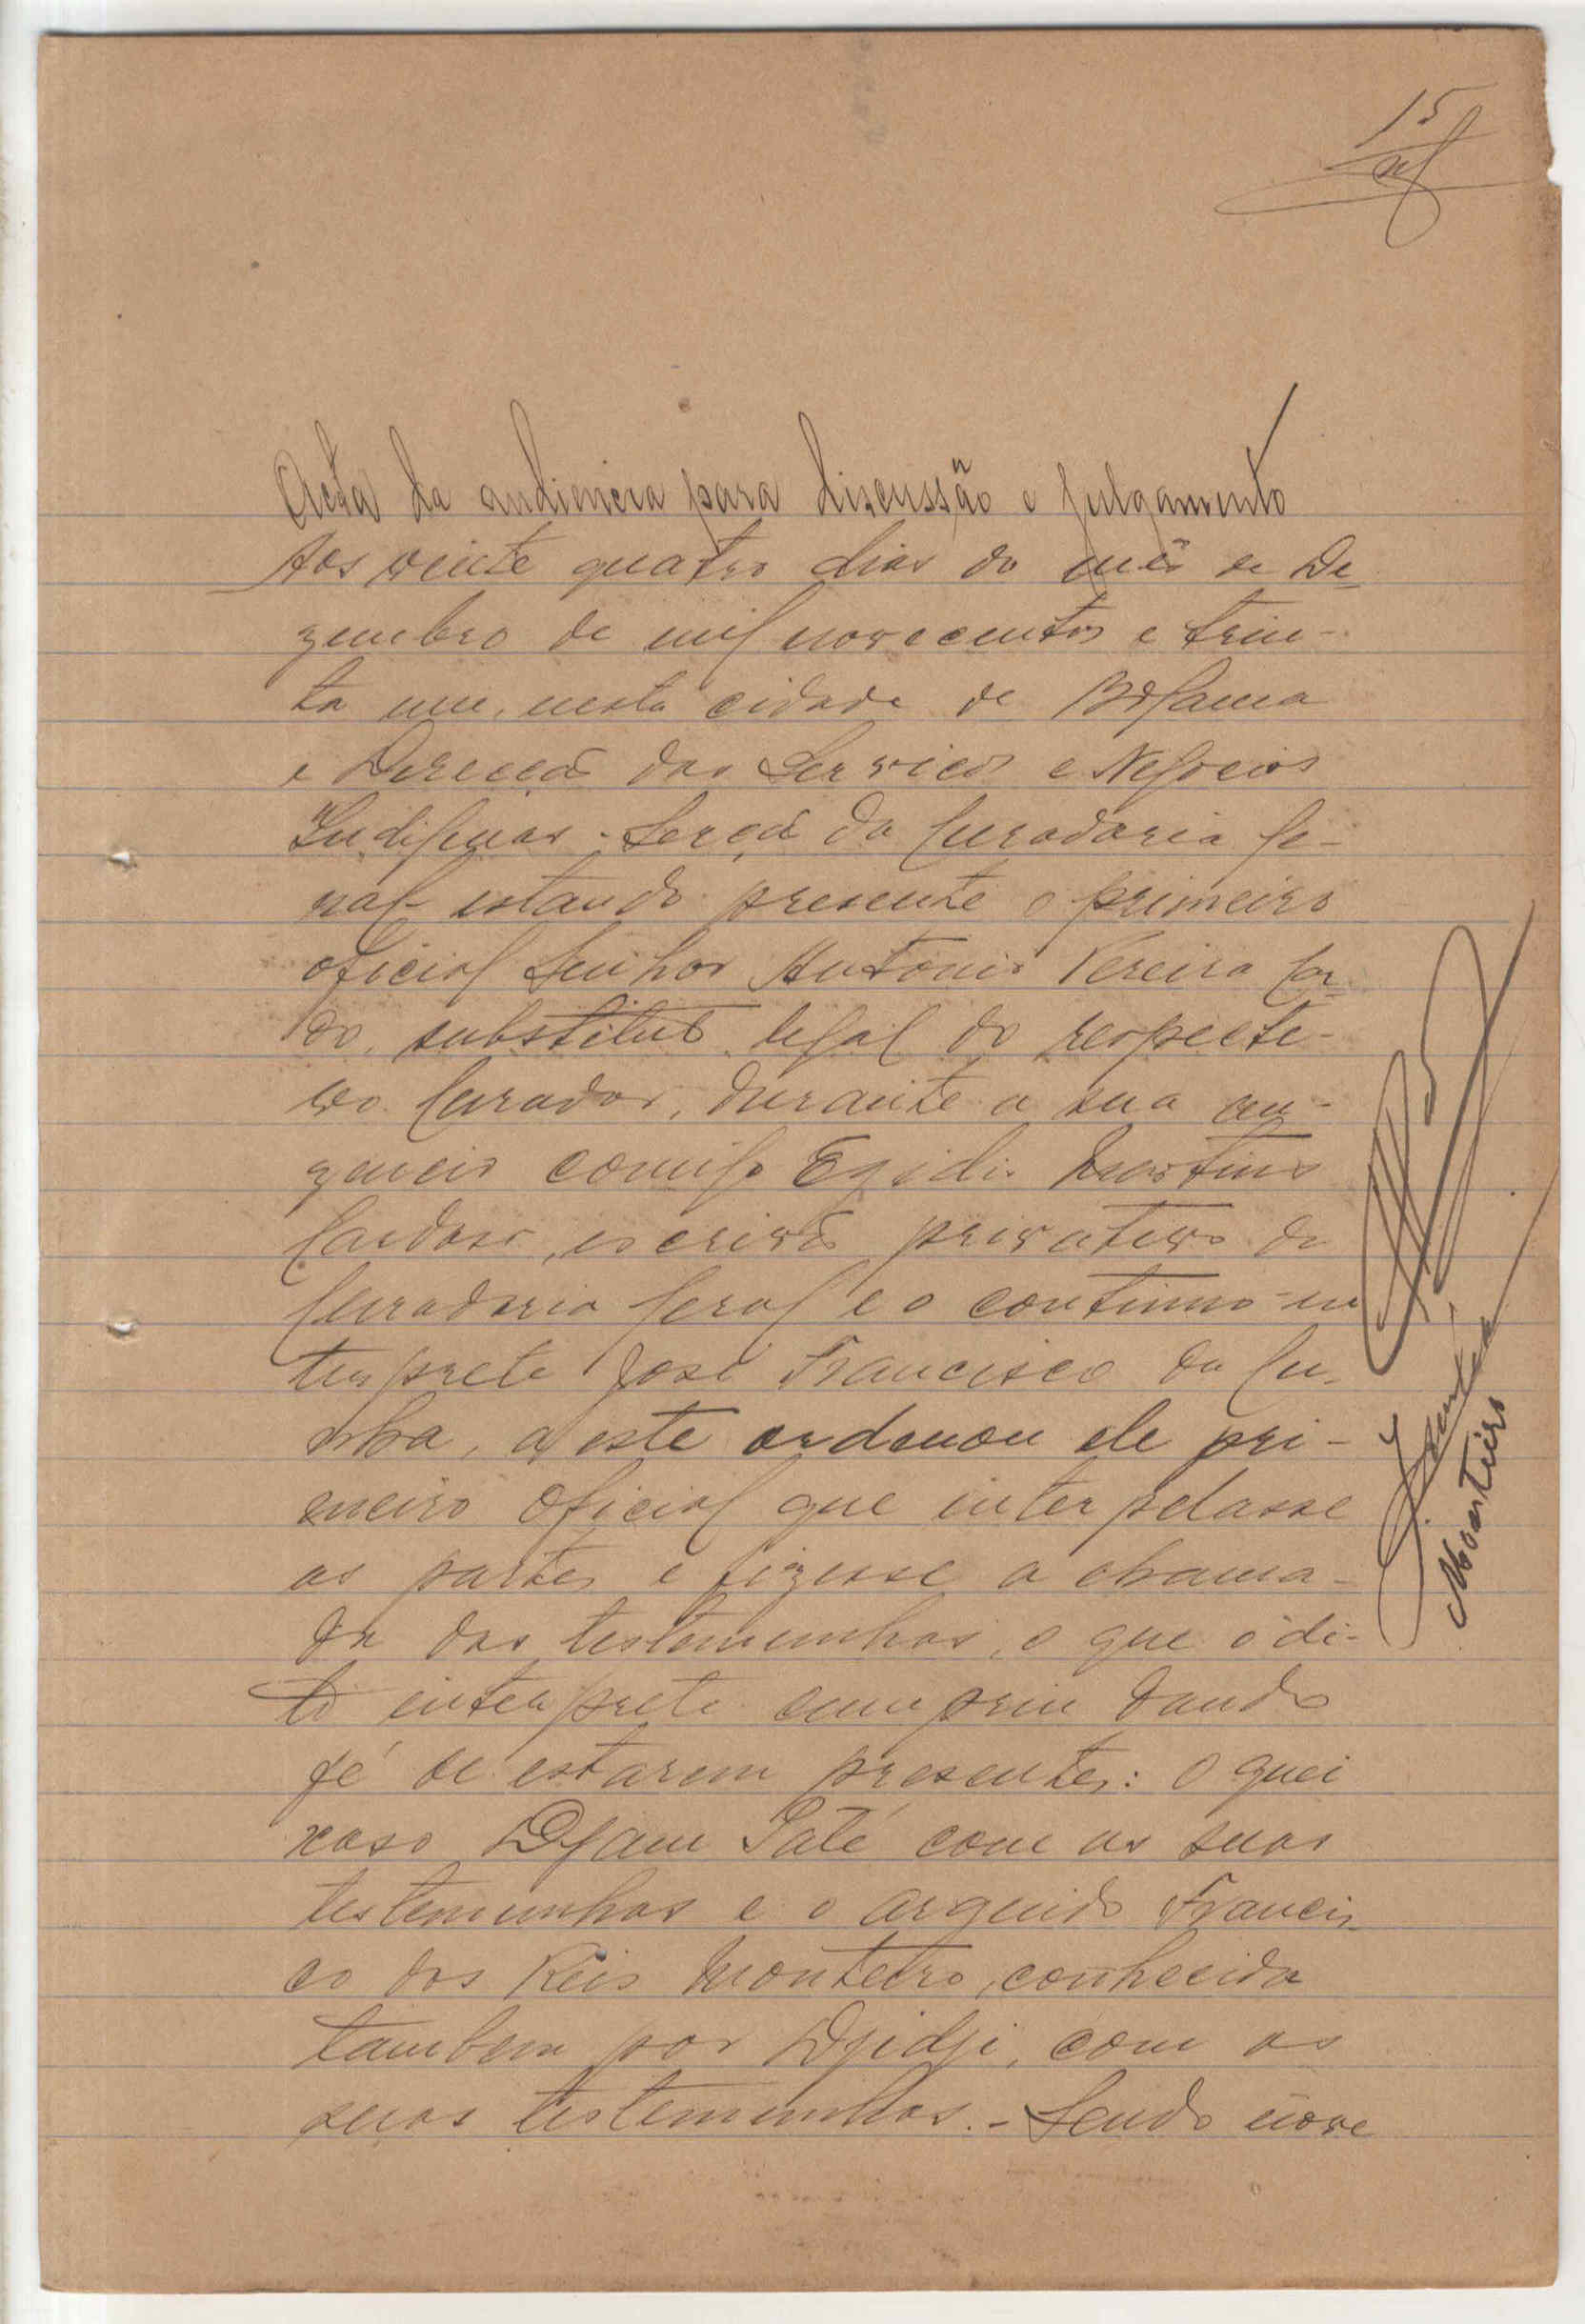 15
Acta da audiencia para discussão e julgamento
Aos vinte quatro dias do mês de De-
zembro de mil novecentos e trin-
ta um, nesta cidade de Bolama
e Direcçã dos Serviços e Negocios
Indigenas - Secçã da Curadoria Ge-
ral estando presente o primeiro
oficial Senhor António Pereira Car-
do, substituto legal do respecti-
vo Curador, durante a sua au-
zencia comigo Egidio Martins
Cardoso, escrivã privativo da
Curadoria Geral e o continuo-in
terprete José Francisco da Cu-
nha, a este ordenou ele pri-
meiro oficial que interpelasse
as partes e fizesse a chama-
da das testemunhas, o que o di-
to interprete cumpriu dando
fé de estarem presentes: o quei
xoso Djam Saté com as suas
testemunhas e o arguido Francis-
co dos Reis Monteiro, conhecido
tambem por Djidji, com as
suas testemunhas. - Sendo nove
Monteiro